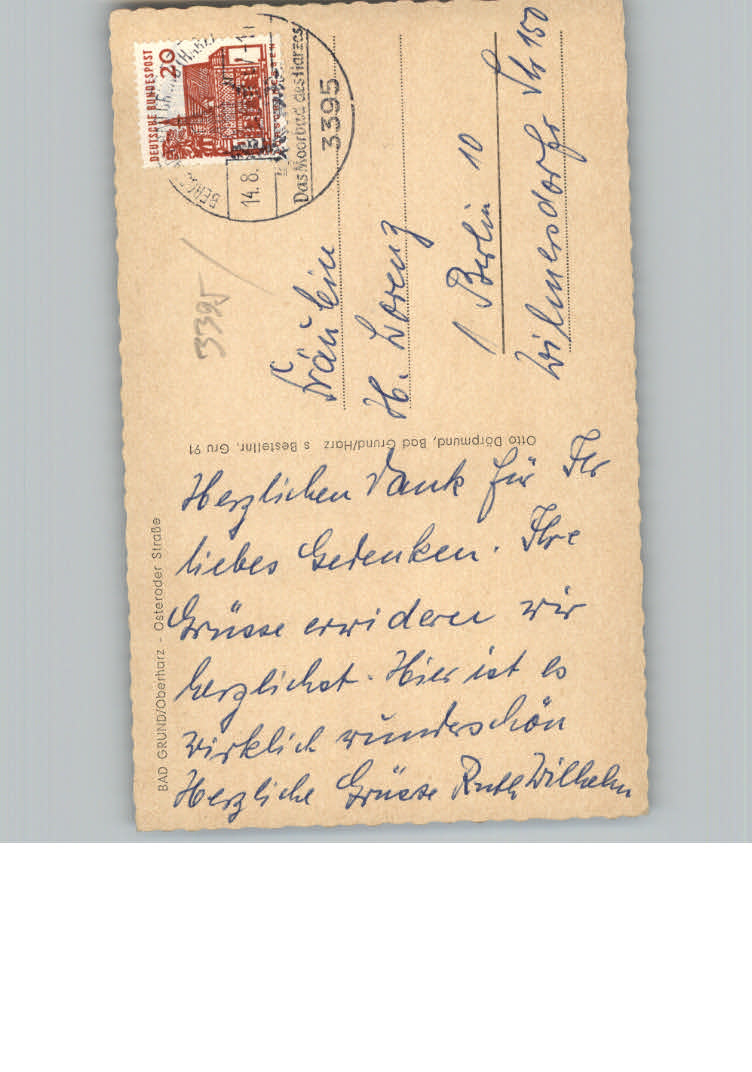 BAD GRUND/Oberharz - Osteroder Straße
Herzlichen Dank für Ihr
liebes Gedenken. Ihre
Grüsse erwidern wir
herzlichst. Hier ist es
wirklich wunderschön
Herzliche Grüsse Ruth Wilhelm
Otto Dörpmund, Bad Grund/Harz s Bestellnr. Gru 91
DEUTSCHE BUNDESPOST
20
14.8.
Das Moorbad des Harzes
3395
3395
Fräulein
H. Lorenz
1 Berlin 10
Wilmersdorfr Str 150